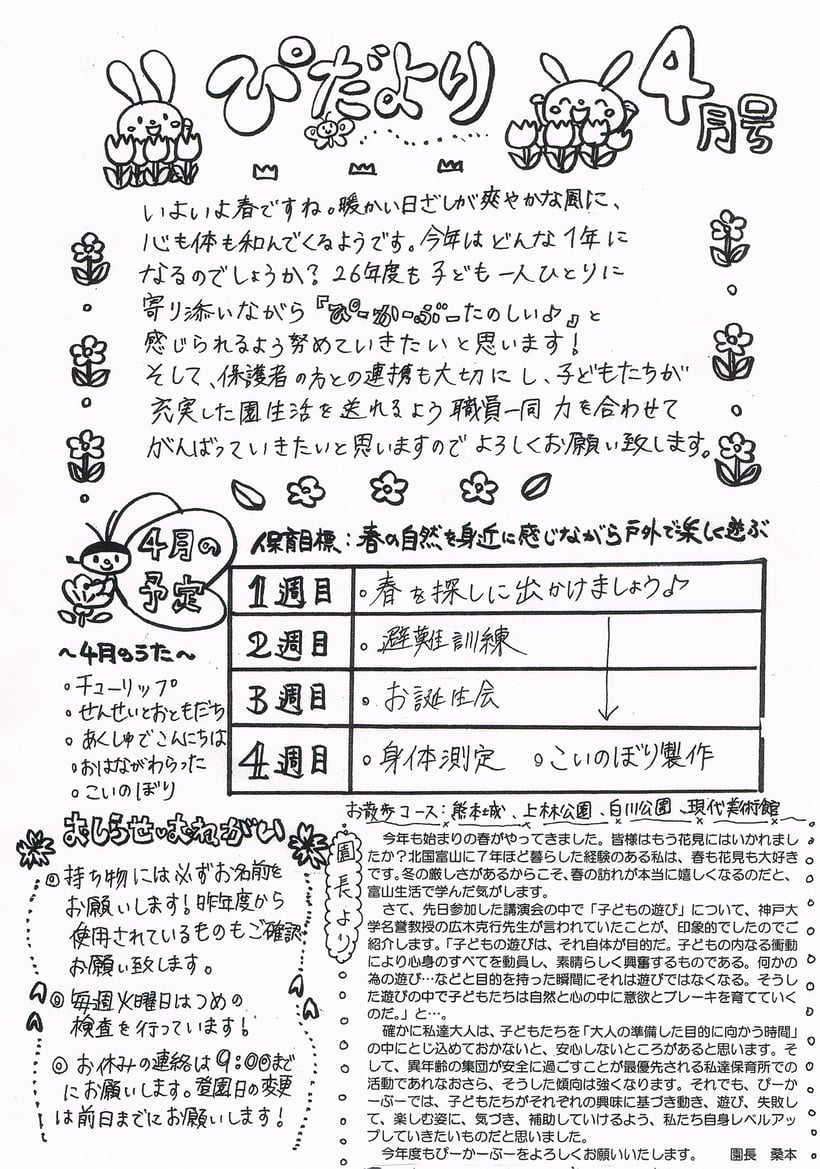 ぴだより
4月号
いよいよ春ですね。暖かい日ざしが爽やかな風に、
心も体も和んでくるようです。今年はどんな1年に
なるのでしょうか？26年度も子ども一人ひとりに
寄り添いながら『ぴーかーぶーたのしい♪』と
感じられるよう努めていきたいと思います！
そして、保護者の方との連携も大切にし、子どもたちが
充実した園生活を送れるよう職員一同 力を合わせて
がんばっていきたいと思いますので よろしくお願い致します。
4月の
予定
保育目標：春の自然を身近に感じながら戸外で楽しく遊ぶ
1週目 ○春を探しに出かけましょう♪
2週目 ○避難訓練
3週目 ○お誕生会
4週目 ○身体測定 ○こいのぼり製作
～4月のうた～
○チューリップ
○せんせいとおともだち
○あくしゅでこんにちは
○おはながわらった
○こいのぼり
お散歩コース：熊本城、上林公園、白川公園、現代美術館
おしらせ・おねがい
◎持ち物には必ずお名前を
お願いします！昨年度から
使用されているものもご確認
お願い致します。
◎毎週火曜日はつめの
検査を行っています！
◎お休みの連絡は9:00まで
にお願いします。登園日の変更
は前日までにお願いします！
園長より
今年も始まりの春がやってきました。皆様はもう花見にはいかれまし
たか？北国富山に７年ほど暮らした経験のある私は、春も花見も大好き
です。冬の厳しさがあるからこそ、春の訪れが本当に嬉しくなるのだと、
富山生活で学んだ気がします。
さて、先日参加した講演会の中で「子どもの遊び」について、神戸大
学名誉教授の広木克行先生が言われていたことが、印象的でしたのでご
紹介します。「子どもの遊びは、それ自体が目的だ。子どもの内なる衝動
により心身のすべてを動員し、素晴らしく興奮するものである。何かの
為の遊び…などと目的を持った瞬間にそれは遊びではなくなる。そうし
た遊びの中で子どもたちは自然と心の中に意欲とブレーキを育てていく
のだ。」と…。
確かに私達大人は、子どもたちを「大人の準備した目的に向かう時間」
の中にとじ込めておかないと、安心しないところがあると思います。そ
して、異年齢の集団が安全に過ごすことが最優先される私達保育所での
活動であれなおさら、そうした傾向は強くなります。それでも、ぴーか
ーぶーでは、子どもたちがそれぞれの興味に基づき動き、遊び、失敗し
て、楽しむ姿に、気づき、補助していけるよう、私たち自身レベルアッ
プしていきたいものだと思いました。
今年度もぴーかーぶーをよろしくお願いいたします。 園長 桑本